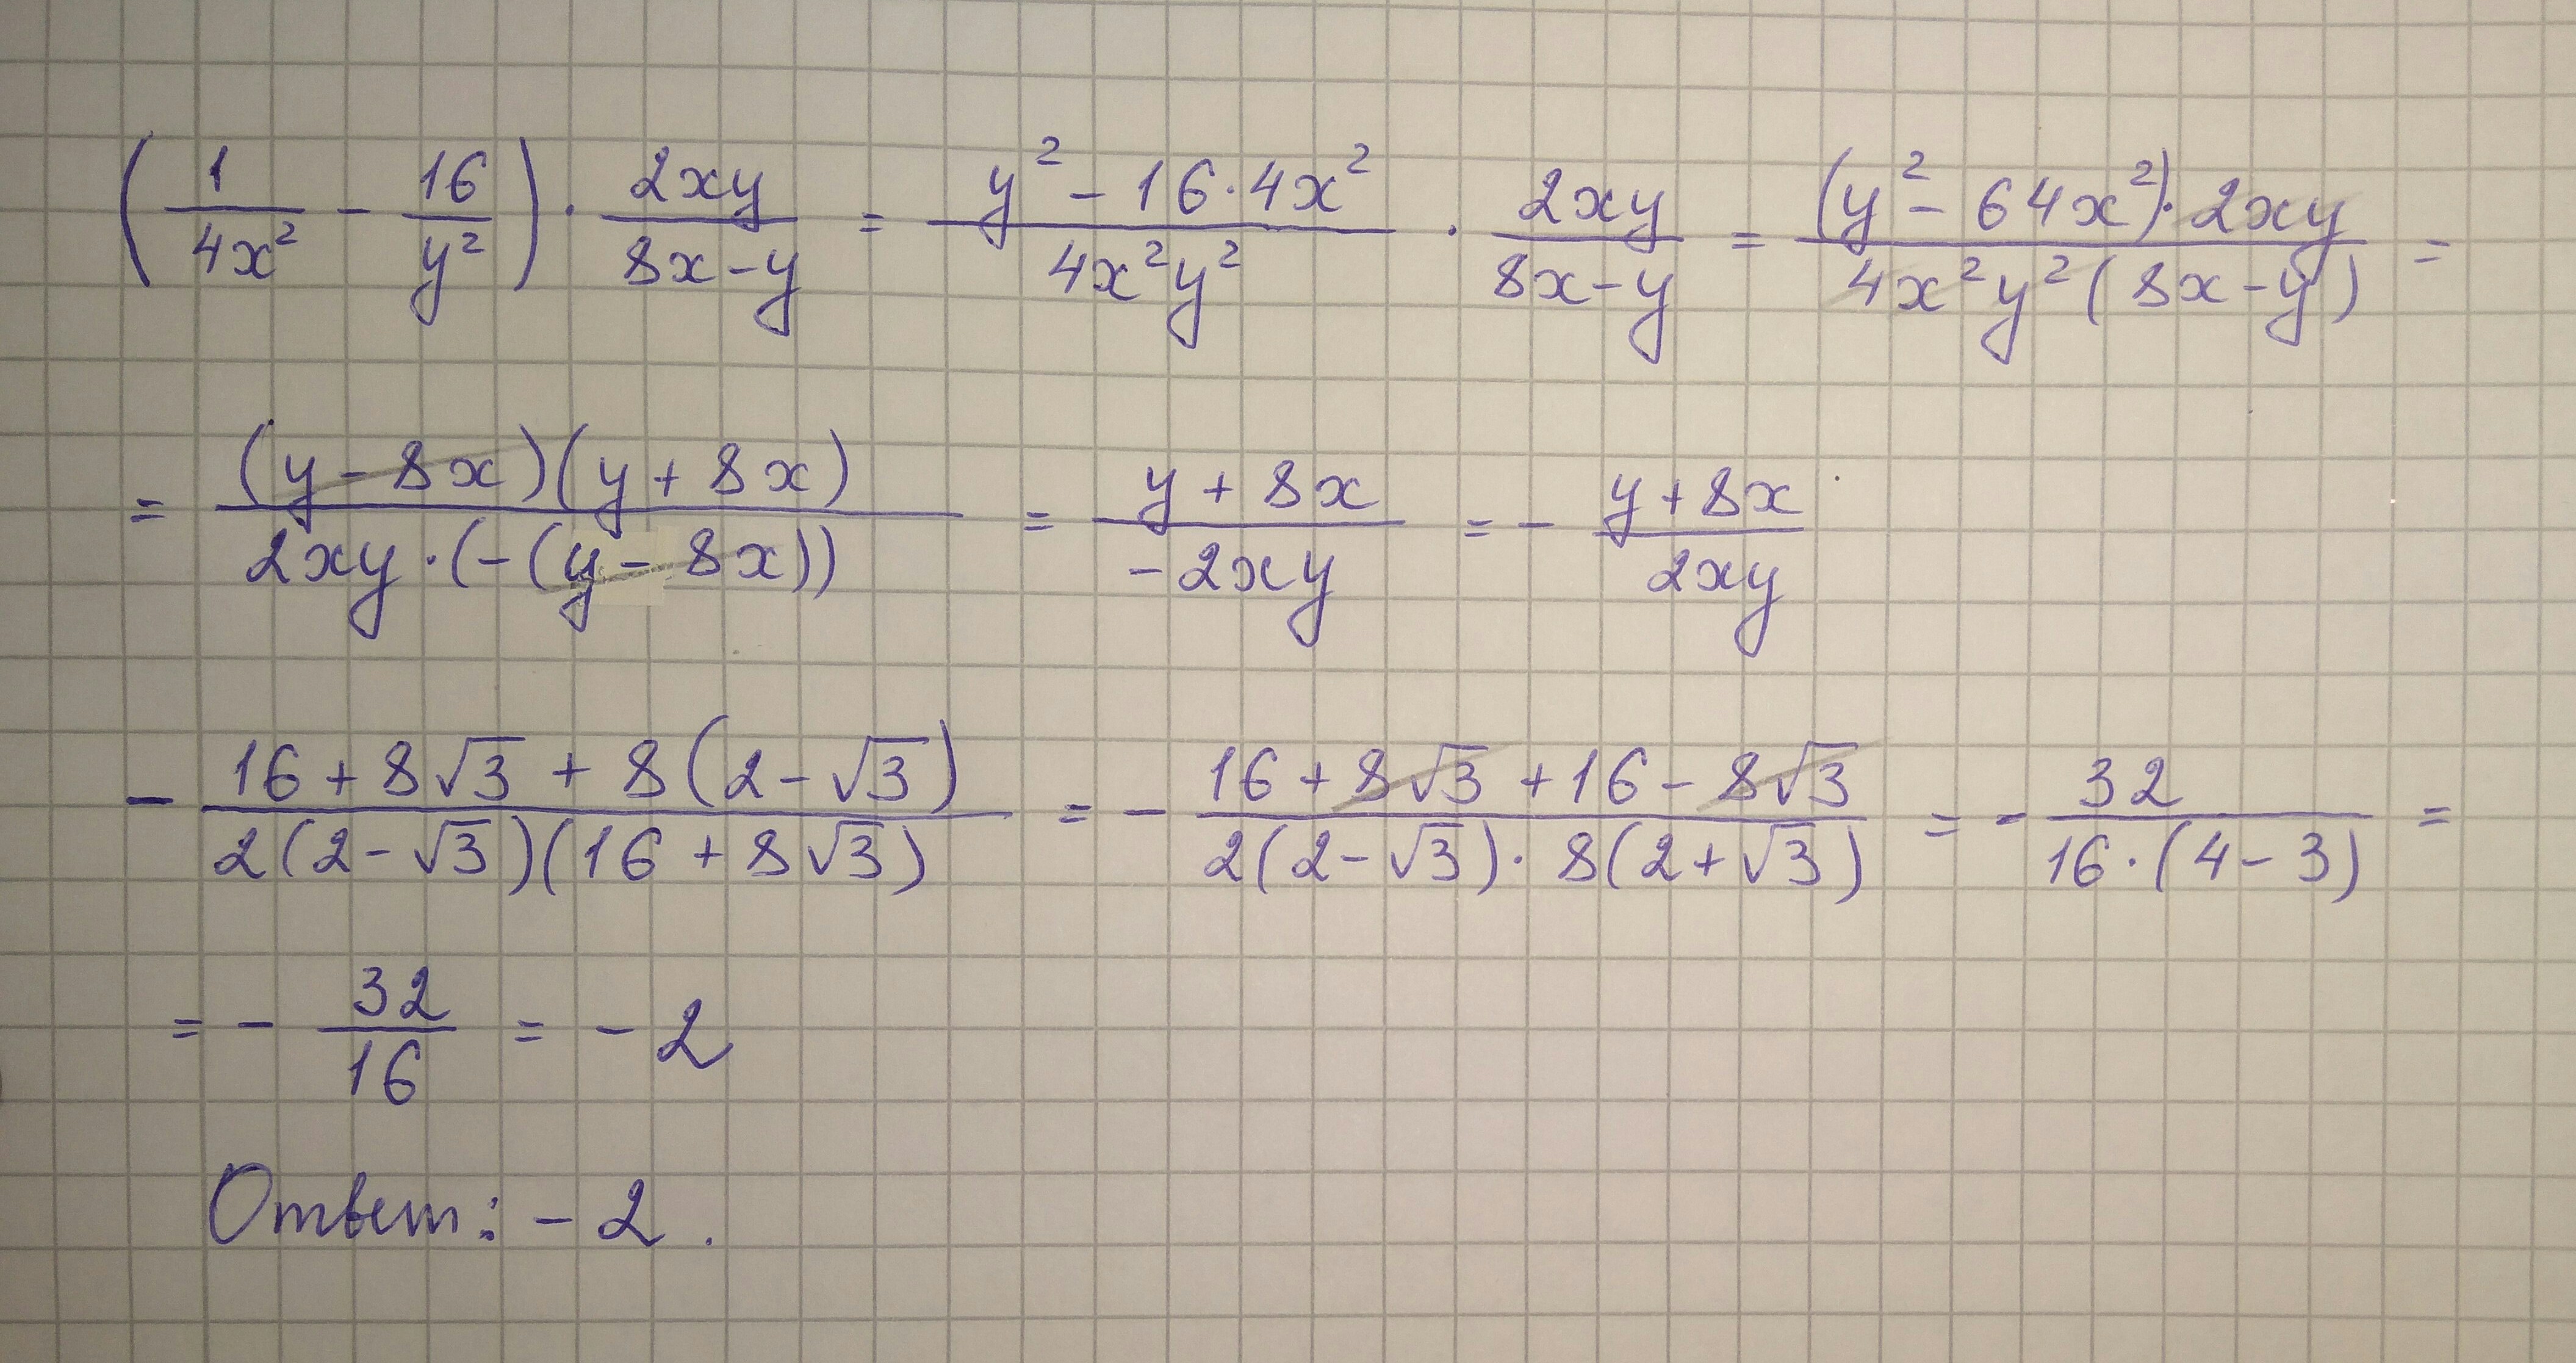 (1/4x² - 16/y²) · 2xy/8x-y = y² - 16·4x²/4x²y² · 2xy/8x-y = (y² - 64x²)·2xy/4x²y²(8x-y) =
= (y-8x)(y+8x)/2xy·(-(y-8x)) = y+8x/-2xy = - y+8x/2xy
- 16+8√3+8(2-√3)/2(2-√3)(16+8√3) = - 16+8√3+16-8√3/2(2-√3)·8(2+√3) = - 32/16·(4-3) =
= - 32/16 = -2
Ответ: -2.